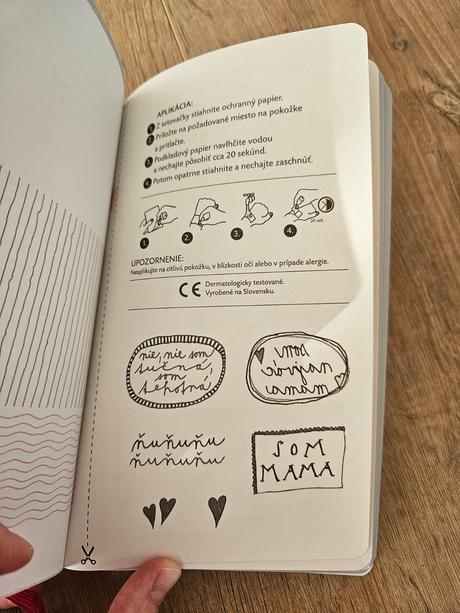 APLIKÁCIA:
1 Z tetovačky stiahnite ochranný papier.
2 Priložte na požadované miesto na pokožke
a pritlačte.
3 Podkladový papier navlhčite vodou
a nechajte pôsobiť cca 20 sekúnd.
4 Potom opatrne stiahnite a nechajte zaschnúť.
20 sek.
1. 2. 3. 4.
UPOZORNENIE:
Neaplikujte na citlivú pokožku, v blízkosti očí alebo v prípade alergie.
CE Dermatologicky testované.
Vyrobené na Slovensku.
nie, nie som
tučná,
som
tehotná,
ňuňuňu
ňuňuňu
SOM
MAMA